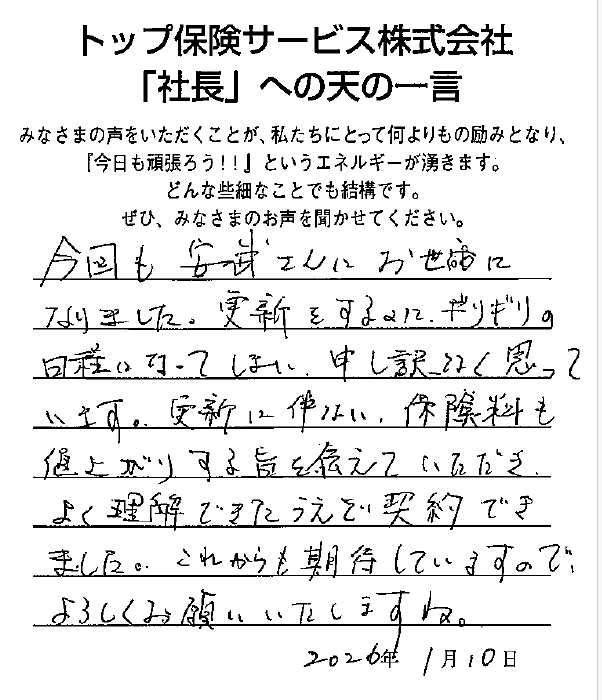 トップ保険サービス株式会社
「社長」への天の一言
みなさまの声をいただくことが、私たちにとって何よりもの励みとなり、
『今日も頑張ろう!!』というエネルギーが湧きます。
どんな些細なことでも結構です。
ぜひ、みなさまのお声を聞かせてください。
今回も安武さんにお世話に
なりました。更新をするのに、ギリギリの
日程になってしまい、申し訳なく思って
います。更新に伴ない、保険料も
値上がりする旨を伝えていただき、
よく理解できたうえで契約でき
ました。これからも期待していますので、
よろしくお願いいたしますね。
2026年 1月10日